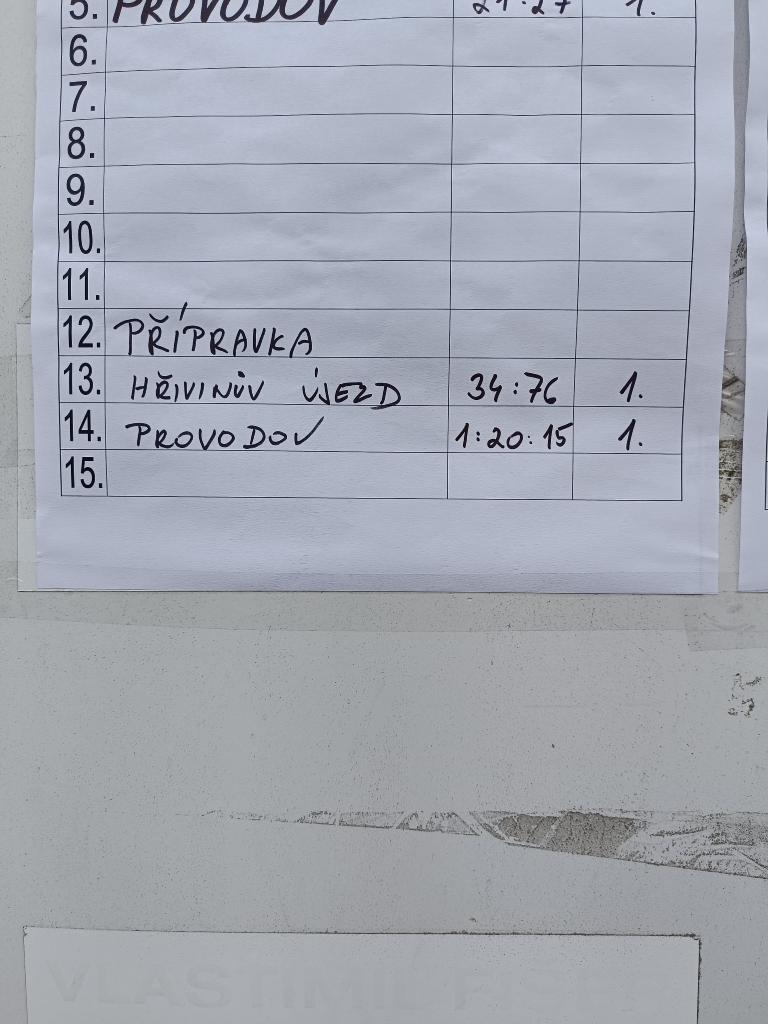 5. PROVODOV 21:27 1.
6.
7.
8.
9.
10.
11.
12. PŘÍPRAVKA
13. HŘIVINŮV ÚJEZD 34:76 1.
14. PROVODOV 1:20:15 1.
15.
VLASTIMIL FIŠER